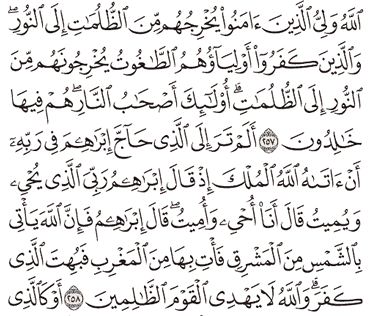 ٱللَّهُ وَلِيُّ ٱلَّذِينَ ءَامَنُوا۟ يُخْرِجُهُم مِّنَ ٱلظُّلُمَـٰتِ إِلَى ٱلنُّورِ ۖ
وَٱلَّذِينَ كَفَرُوٓا۟ أَوْلِيَآؤُهُمُ ٱلطَّـٰغُوتُ يُخْرِجُونَهُم مِّنَ
ٱلنُّورِ إِلَى ٱلظُّلُمَـٰتِ ۗ أُو۟لَـٰٓئِكَ أَصْحَـٰبُ ٱلنَّارِ ۖ هُمْ فِيهَا
خَـٰلِدُونَ ٢٥٧ أَلَمْ تَرَ إِلَى ٱلَّذِى حَآجَّ إِبْرَٰهِـۧمَ فِى رَبِّهِۦٓ
أَنْ ءَاتَىٰهُ ٱللَّهُ ٱلْمُلْكَ إِذْ قَالَ إِبْرَٰهِـۧمُ رَبِّىَ ٱلَّذِى يُحْىِۦ
وَيُمِيتُ قَالَ أَنَا۠ أُحْىِۦ وَأُمِيتُ ۖ قَالَ إِبْرَٰهِـۧمُ فَإِنَّ ٱللَّهَ يَأْتِى
بِٱلشَّمْسِ مِنَ ٱلْمَشْرِقِ فَأْتِ بِهَا مِنَ ٱلْمَغْرِبِ فَبُهِتَ ٱلَّذِى
كَفَرَ ۗ وَٱللَّهُ لَا يَهْدِى ٱلْقَوْمَ ٱلظَّـٰلِمِينَ ٢٥٨ أَوْ كَٱلَّذِى